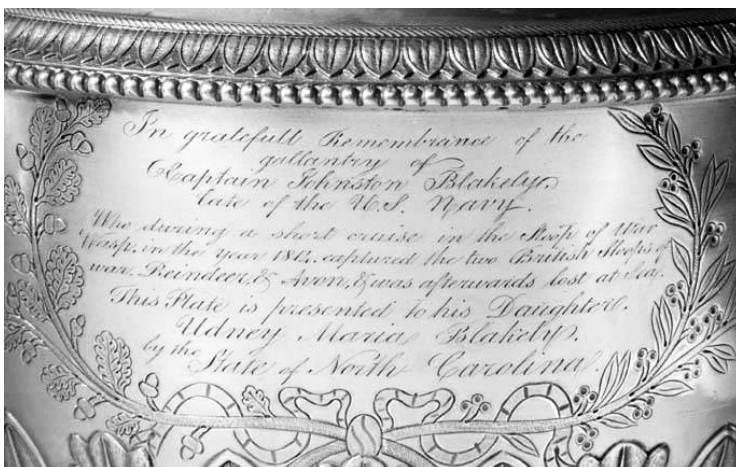 In gratefull Remembrance of the
gallantry of
Captain Johnston Blakely,
late of the U.S. Navy.
Who during a short cruise in the Sloop of War
Wasp, in the year 1814, captured the two British Sloops of
war, Reindeer, & Avon, & was afterwards lost at Sea.
This Plate is presented to his Daughter.
Udney Maria Blakely,
by the State of North Carolina.